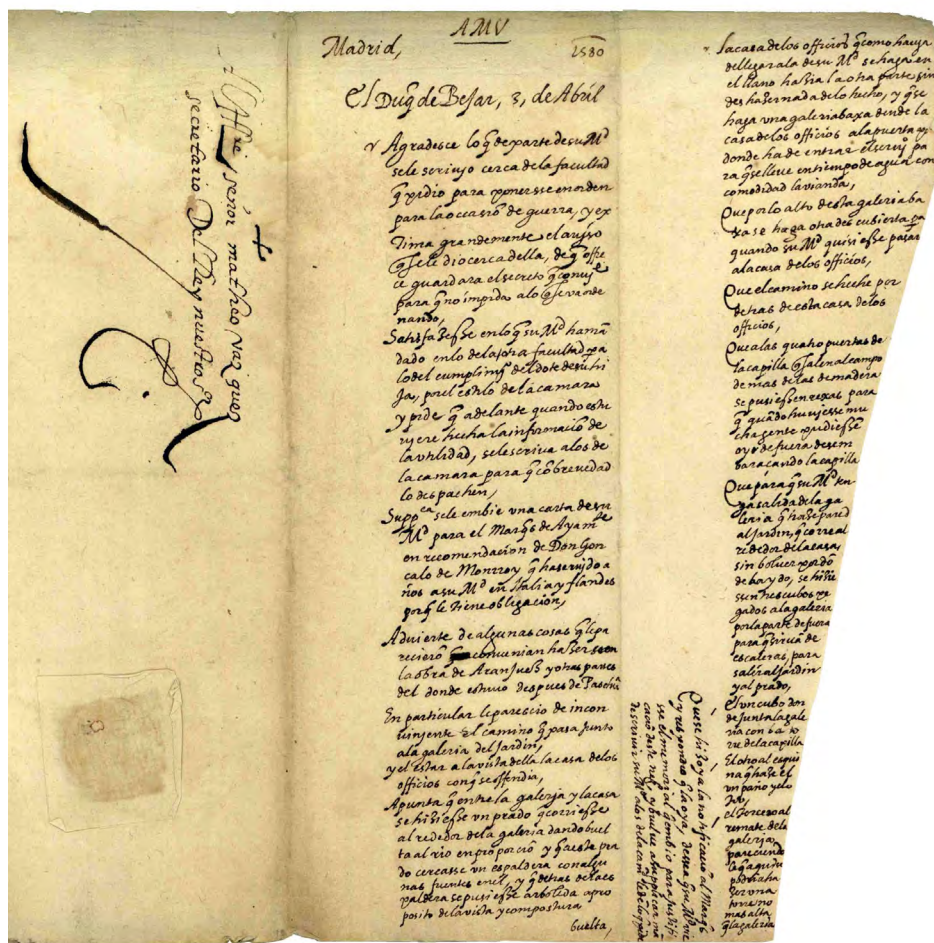 AMV
Madrid, 1580
El Duq̃ de Besar, 3, de Abril
Agradesce lo q̃ de parte de su Mᵈ
se le scriuio cerca de la facultad
q̃ pidio para ponersse en orden
para la occasiõ de guerra, y ex
tima grandemente el auiso
q̃ se le dio cerca della, de q̃ offre
ce guardara el secreto q̃ conuiẽ
para q̃ no impida a lo q̃ se va orde
nando,
Satisfaziesse en lo q̃ su Mᵈ ha mã
dado en lo de la otra facultad pa
lo del cumplimjº del dote de su hi
ja, por el estilo de la camara
y pide q̃ adelante quando estu
uiere hecha la informaciõ de
la vtilidad, se le scriua a los de
la camara para q̃ cõ breuedad
lo despachen,
Suppᶜᵃ se le embie vna carta de su
Mᵈ para el Marq̃s de Ayamᵗᵉ
en recomendacion de Don Gon
calo de Monrroy q̃ ha seruido a
ños a su Mᵈ en Italia y flandes
por q̃ le tiene obligacion,
Aduierte de algunas cosas q̃ le pa
recierõ q̃ conuenian hazerse en
la obra de Aranjuez y otras partes
del donde estuuo despues de Pascua
En particular le parescio de incon
uinjente el camino q̃ passa junto
a la galeria del Jardin,
y el estar a la vista della la casa de los
officios con q̃ se offendia,
Apunta q̃ entre la galeria y la casa
se hiziesse vn prado q̃ corriesse
al rededor de la galeria dando buel
ta al rio en proporciõ y q̃ a este pra
do cercasse vn espaldera con algu
nas fuentes en el, y q̃ detras de la es
paldera se pusiesse arboleda a pro
posito de la vista y compostura
buelta,
la casa de los officios q̃ como hauja
de llegar a la de su Mᵈ se haga en
el llano hazia la otra parte sin
deshazer nada de lo hecho, y q̃ se
haga vna galeria baxa dende la
casa de los officios a la puerta
donde ha de entrar el seruiº pa
ra q̃ se lleue en tiempo de agua con
comodidad la vianda,
Que por lo alto desta galeria ba
xa se haga otra descubierta pa
quando su Mᵈ quisiesse passar
a la casa de los officios,
Que el camino se heche por
detras de esta casa de los
officios,
Que a las quatro puertas de
la capilla q̃ salen al campo
de mas de las de madera
se pusiessen rexas para
q̃ quãdo huuiesse mu
cha gente pudiesse
oyr de fuera desem
baracando la capilla
Que para q̃ su Mᵈ ten
ga salida de la ga
leria q̃ haze pared
al jardin, q̃ corre al
rededor de la casa
sin boluer por dõ
de ha ydo, se hizie
ssen tres cubos pe
gados a la galeria
por la parte de fuera
para q̃ siruã de
escaleras, para
salir al jardin
y al prado,
El vn cubo don
de junta la gale
ria con la to
rre de la capilla
El otro al esqui
na q̃ haze el
vn paño y el o
tro,
el tercero al
remate de la
galeria,
pareciendo
le q̃ aqui
podria ha
zer vna
torre no
mas alta
q̃ la galeria
Que se hizo ya la notificaciõ al Marq̃s
Al Illᵉ señor matheo vazquez
secretario Del Rey nuestro sʳ